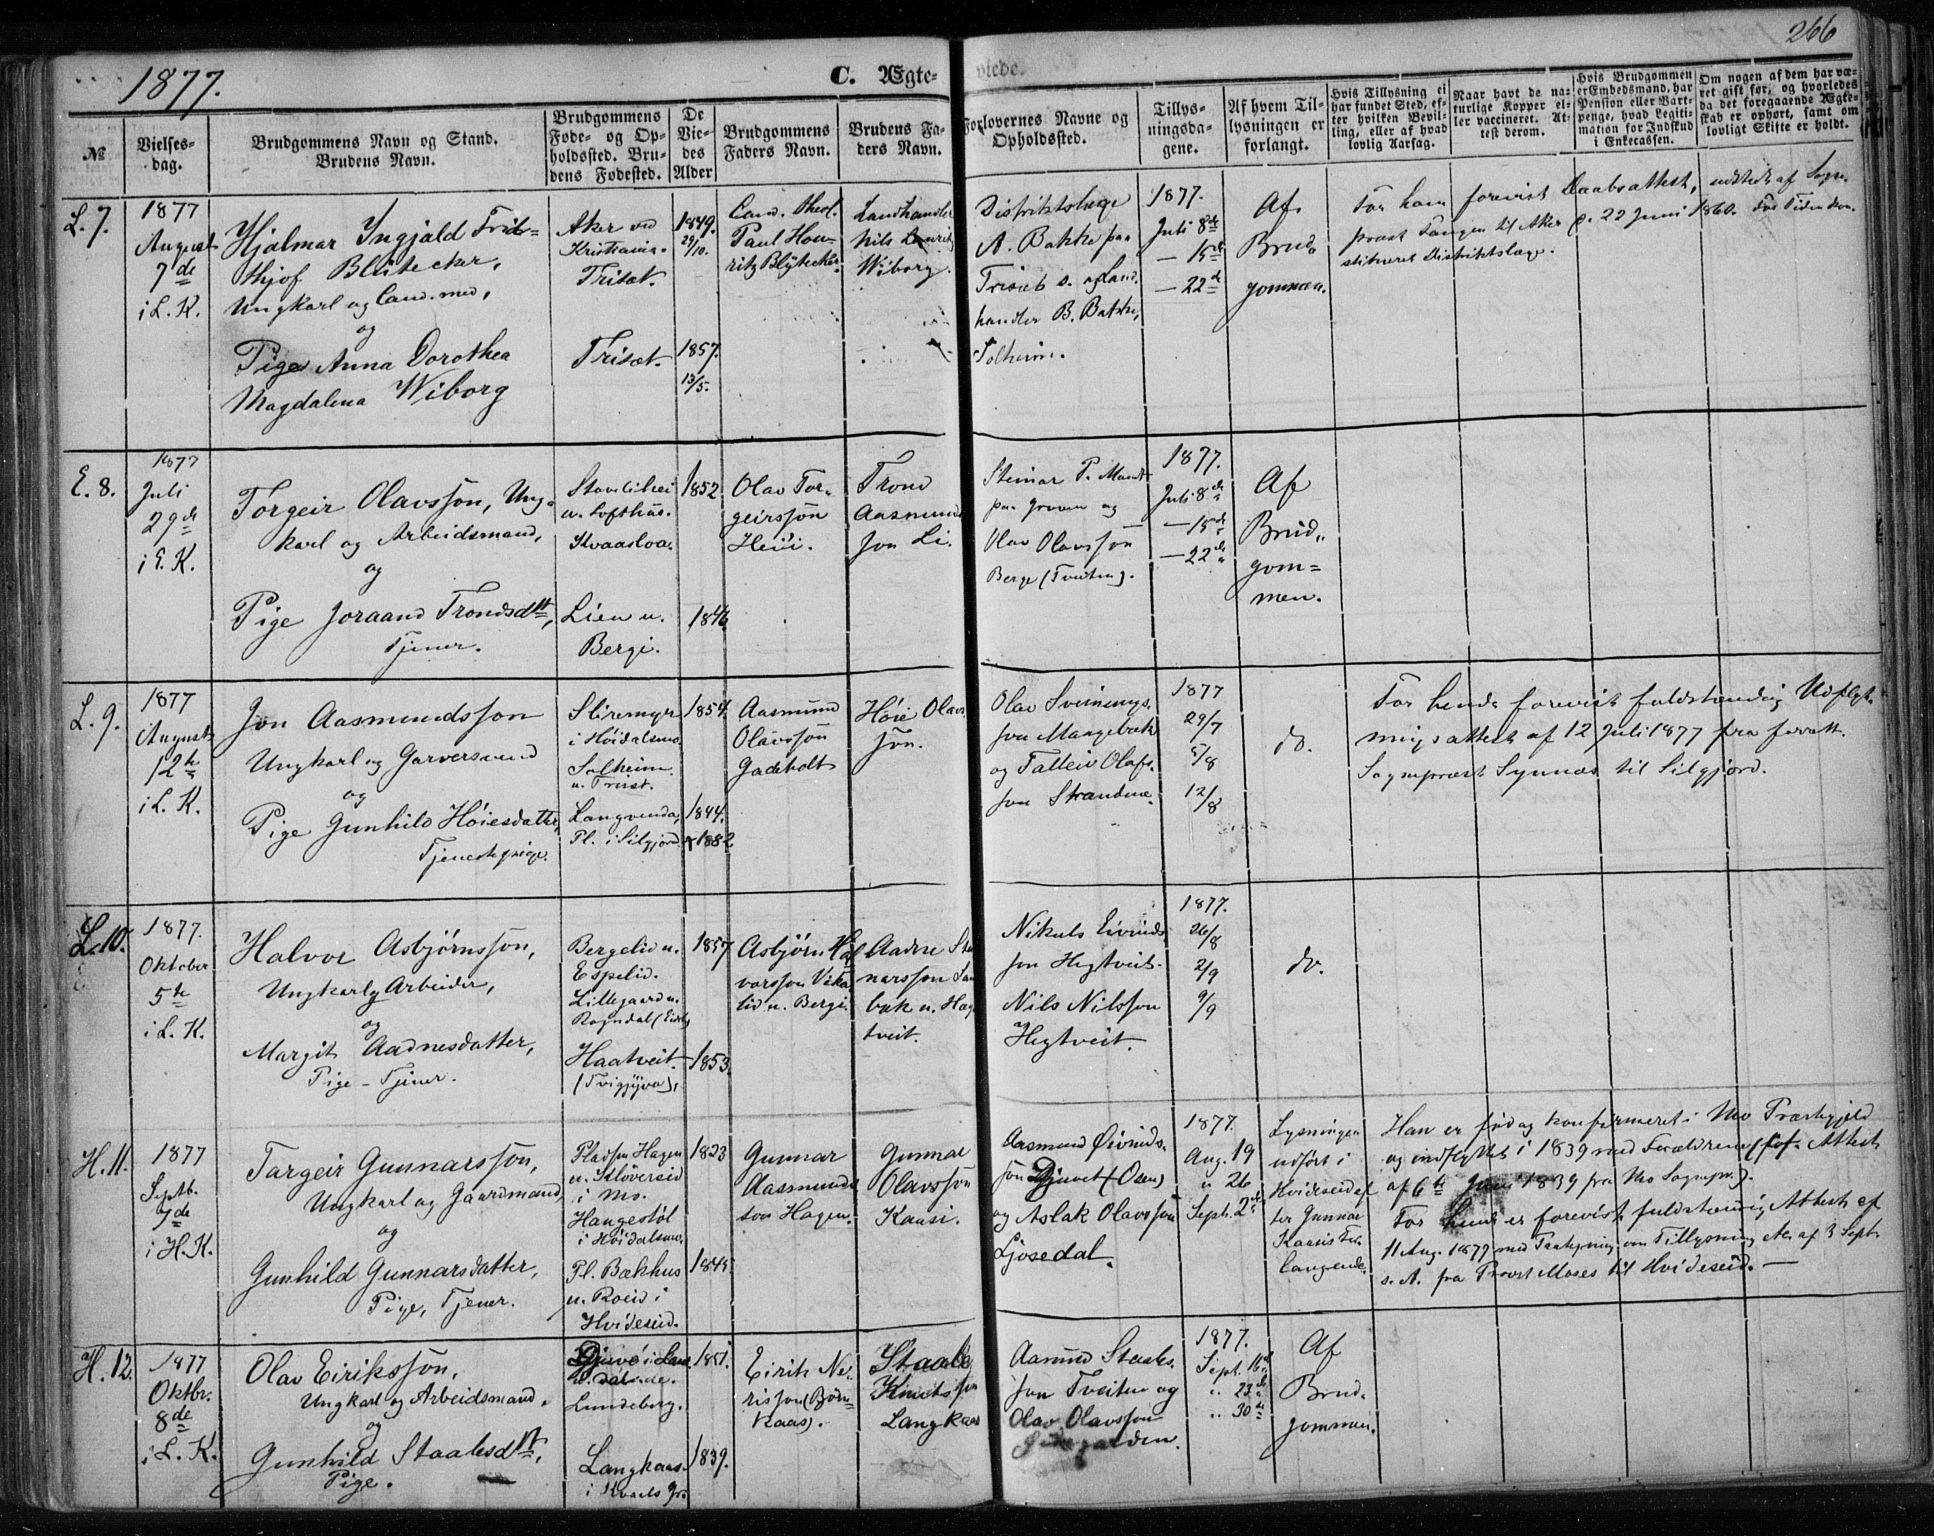 266
1877.
C. Ægte-
viede.
№
Vielses-
dag.
Brudgommens Navn og Stand.
Brudens Navn.
Brudgommens
Føde- og Op-
holdssted. Bru-
dens Fødested.
De
Vie-
des
Alder
Brudgommens
Faders Navn.
Brudens Fa-
ders Navn.
Forlovernes Navne og
Opholdssted.
Tillys-
ningsda-
gene.
Af hvem Til-
lysningen er
forlangt.
Hvis Tillysning ei
har fundet Sted, ef-
ter hvilken Bevil-
ling, eller af hvad
lovlig Aarsag.
Naar havt de na-
turlige Kopper el-
ler vaccineret. At-
test derom.
Hvis Brudgommen
er Embedsmand, har
Pension eller Vart-
penge, hvad Legiti-
mation for Indskud
i Enkecassen.
Om nogen af dem har væ-
ret gift før, og hvorledes
da det foregaaende Ægte-
skab er ophørt, samt om
lovligt Skifte er holdt.
L. 7.
1877
August
7de
i L. K.
Hjalmar Ingjald Frit-
thjof Blütecker,
Ungkarl og Cand. med,
og
Pige Anna Dorothea
Magdalena Wiborg
Aker ved
Kristiania.
Triset.
Triset.
1849.
29/10.
1857.
13/5.
Cand. theol.
Paul Hou-
ritz Blÿtecker.
Landhandler
Nils
Wiborg.
Distriktslæge
A. Bakke paa
Triset s. og Land-
handler B. Bakke,
Solheim.
1877.
Juli 8de
— 15de
— 22de
Af
Brud-
gommen.
For ham forevist Daabsattest, udstedt af Sogne-
prest Tangen til Aker d. 22 Juni 1860. For Tiden kon-
stitueret Distriktslæge.
E. 8.
1877
Juli
29de
i E. K.
Torgeir Olavssøn, Ung-
karl og Arbeidsmand,
og
Pige Joraand Trondsdtt,
Tjener.
u. Lofthus.
Kvaasloa.
Lien u.
Bergi.
1852
1846
Olav Tor-
geirssøn
Heïi.
Trond
Aasmunds
søn Li.
Steinar P. Mandt
paa Groven og
Olav Olavssøn
Berge (Tveiten).
1877.
Juli 8de
— 15de
— 22de
Af
Brud-
gom=
men.
L. 9.
1877
August
12te
i L. K.
Jon Aasmundssøn
Ungkarl og Garversvend
og
Pige Gunhild Høiesdatter,
Tjenestepige.
Sliremyr
i Høidalsmo.
Solheim
u. Triset.
Langvenda,
Pl. i Siljord
1854.
1844.
1882
Aasmund
Olavssøn
Gadeholt
Høie Olavs
søn.
Olav Sveinungs-
søn Mangebæk
og Talleiv Olafs-
søn Strandene.
1877
29/7
5/8
12/8
do.
For hende forevist fuldstændig Udflyt-
ningsattest af 12 Juli 1877 fra forrett.
Sogneprest Synnes til Silgjord.
L. 10.
1877.
Oktober
5te
i L. K.
Halvor Asbjørnssøn,
Ungkarl og Arbeider,
og
Margit Aadnesdatter,
Pige - Tjener.
Bergelid u.
Espelid.
Lillegaard u.
Rogndal (Eids)
Haatveit
(Tvigjyva),
1857
1853.
Asbjørn Hal
vorssøn Vika-
lid u. Bergi.
Aadne Stei
narssøn
bæk u. Haa
tveit.
Nikuls Eivinds
søn Hegtveit.
Nils Nilssøn
Hegtveit.
1877.
26/8
2/9
9/9
do.
H. 11.
1877
Septb.
7de
i H. K.
Targeir Gunnarssøn,
Ungkarl og Gaardmand
og
Gunhild Gunnarsdatter,
Pige, Tjener.
Pladsen Hagen
u. Skløversid
i Mo.
Haugestøl
i Høidalsmo.
Pl. Bækhus
u. Roeid i
Hvideseid.
1823
1845.
Gunnar
Aasmunds
søn Hagen.
Gunnar
Olavssøn
Kaasi.
Aasmund Øivinds-
søn Djuvet (Osen)
og Aslak Olavssøn
Ljosedal.
1877.
Aug. 19
" 26
Sept. 2de
Lysningen
udført i
Hvideseid ef-
ter Gunnar
Kaasis For-
langende.
Han er født og konfirmeret i Mo Præstegjeld
og indflyttet i 1839 med Forældrene (cfr. Attest
af 6te Juni 1839 fra Mo Sognepr.).
For hende er forevist fuldstændig Attest af
11 Aug. 1877 med Paategning om Tillysning etc. af 3 Sept.
s. A. fra Provst Moses til Hvideseid. —
H. 12.
1877
Oktbr.
8de
i L. K.
Olav Eirikssøn,
Ungkarl og Arbeidsmand,
og
Gunhild Staalesdtt,
Pige.
Djuve i Laur
dal
Lundeberg.
Langkaas
i Hvaals Gr.
1851.
1839.
Eirik Ne-
rissøn (Bjørn-
Kaas).
Staale
Knutssøn
Langkaas
Aamund Staales-
søn Tveiten og
Olav Olavssøn
1877.
Sept. 16de
" 23de
" 30te
Af
Brud-
gommen.